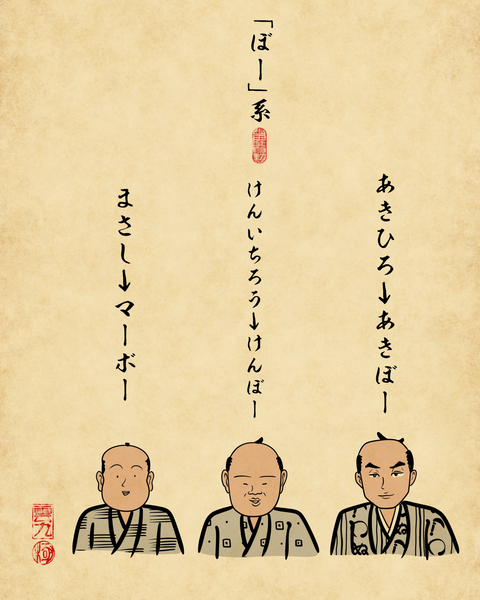 「ぼー」系
あきひろ→あきぼー
けんいちろう→けんぼー
まさし→マーボー